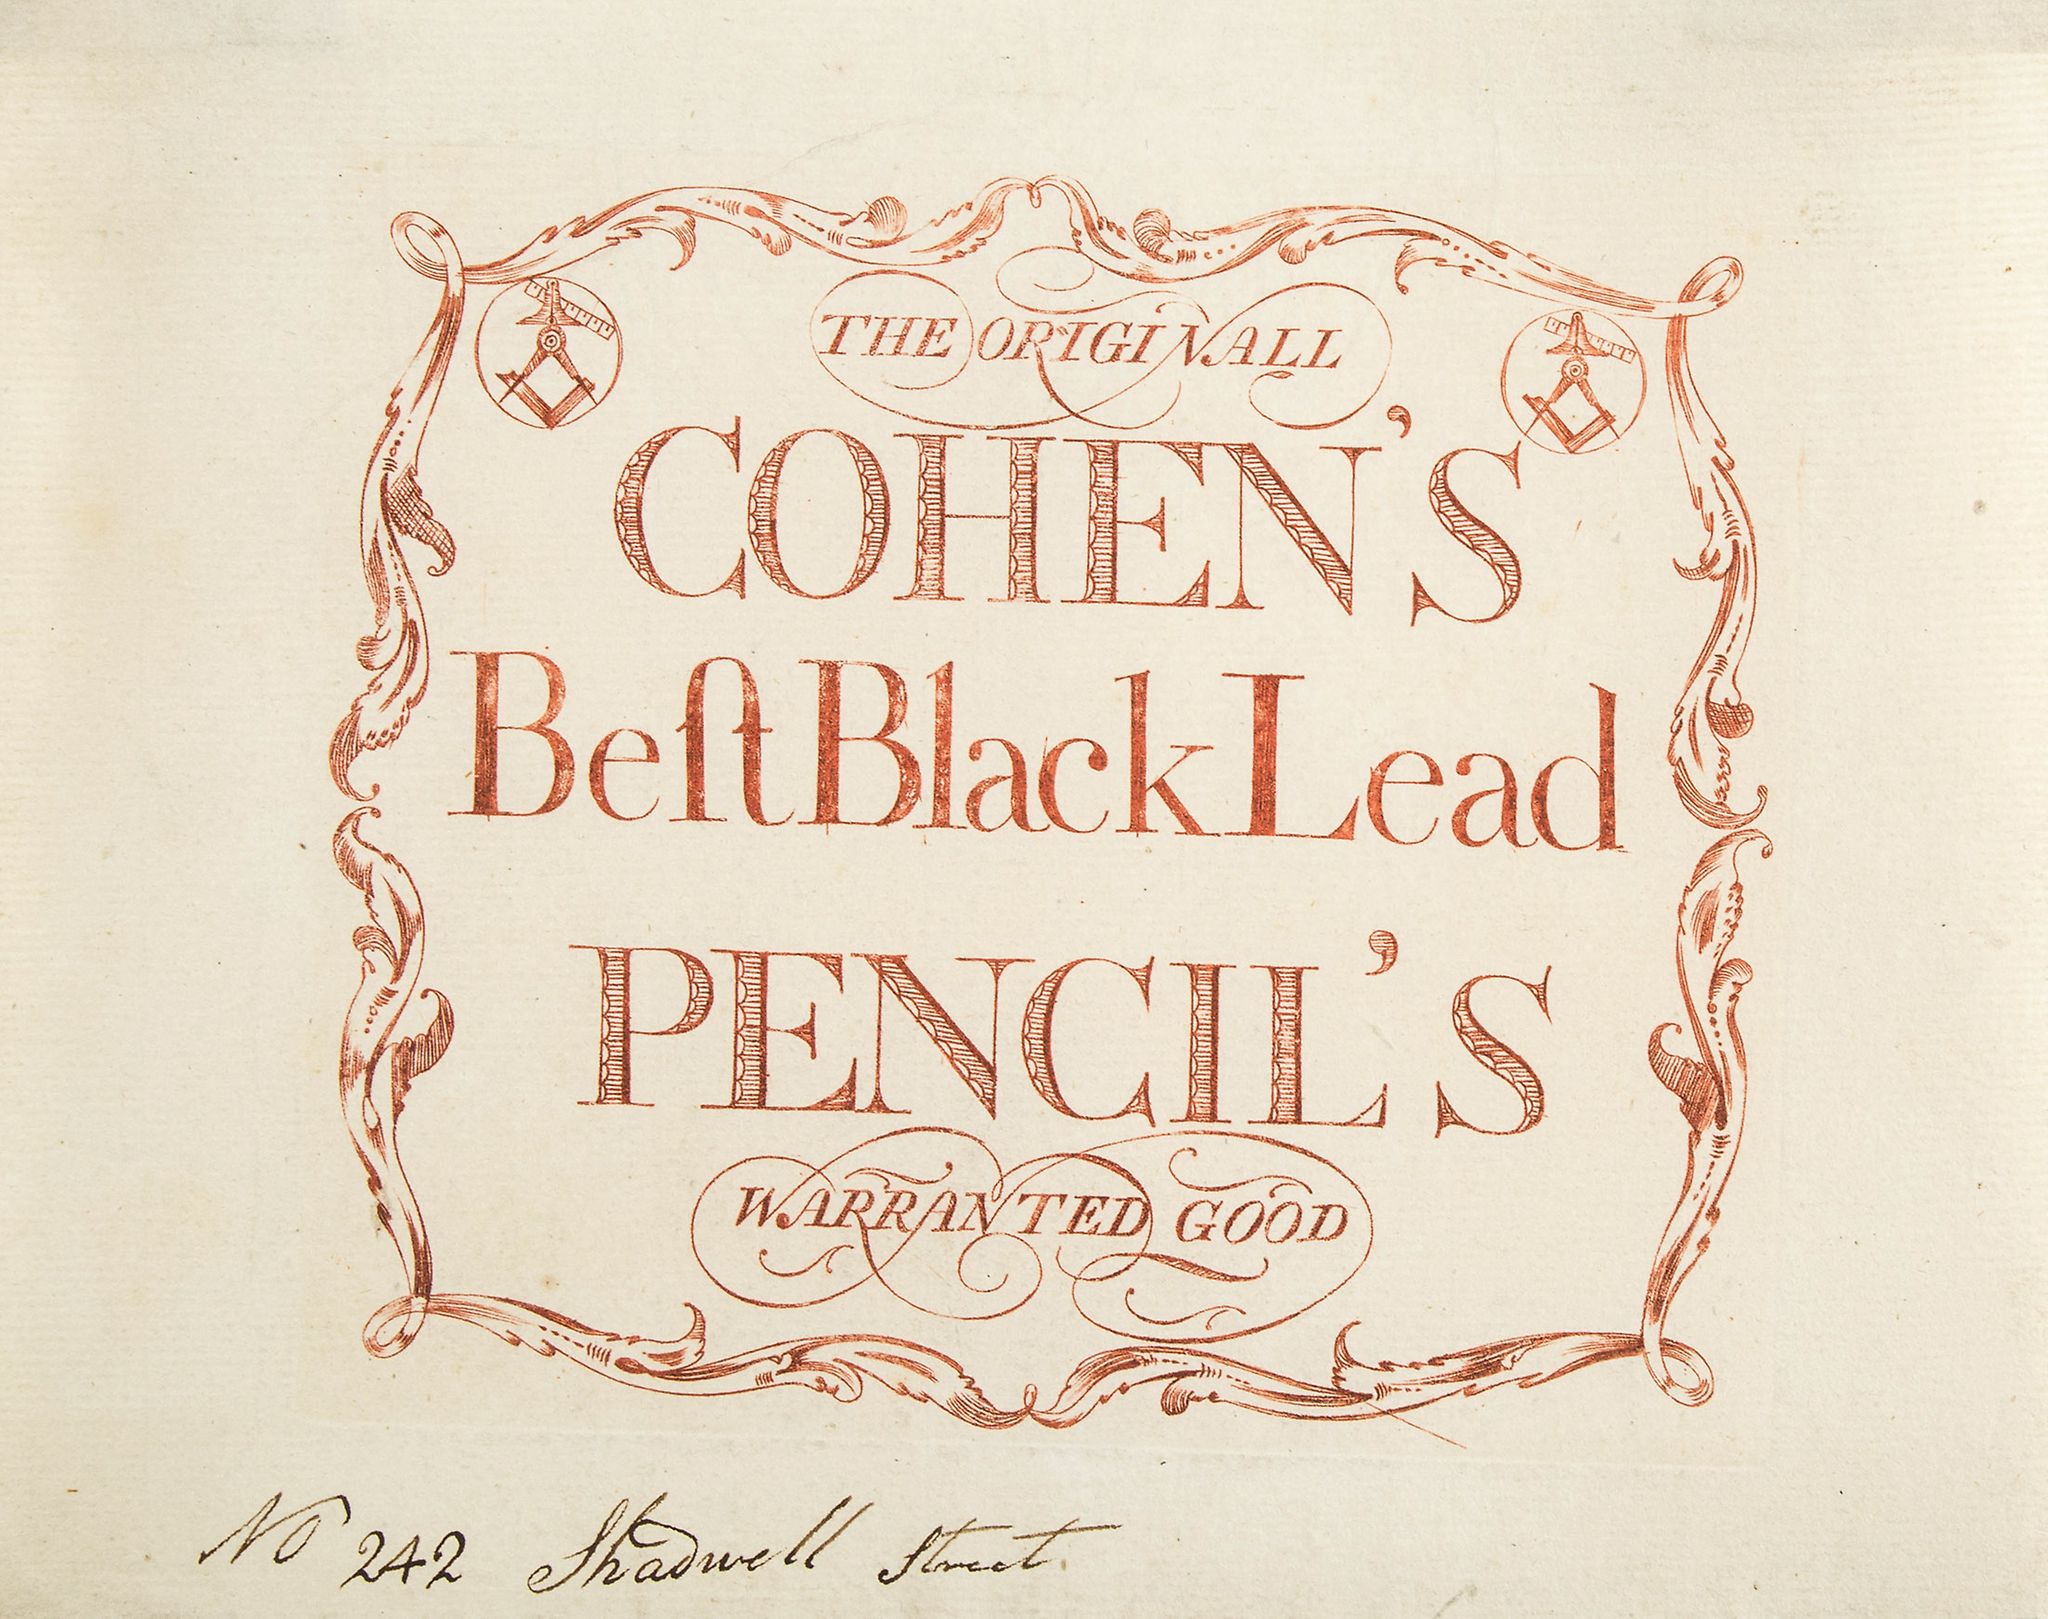 THE ORIGINALL
COHEN'S
Beſt Black Lead
PENCIL'S
WARRANTED GOOD
No 242 Shadwell Street